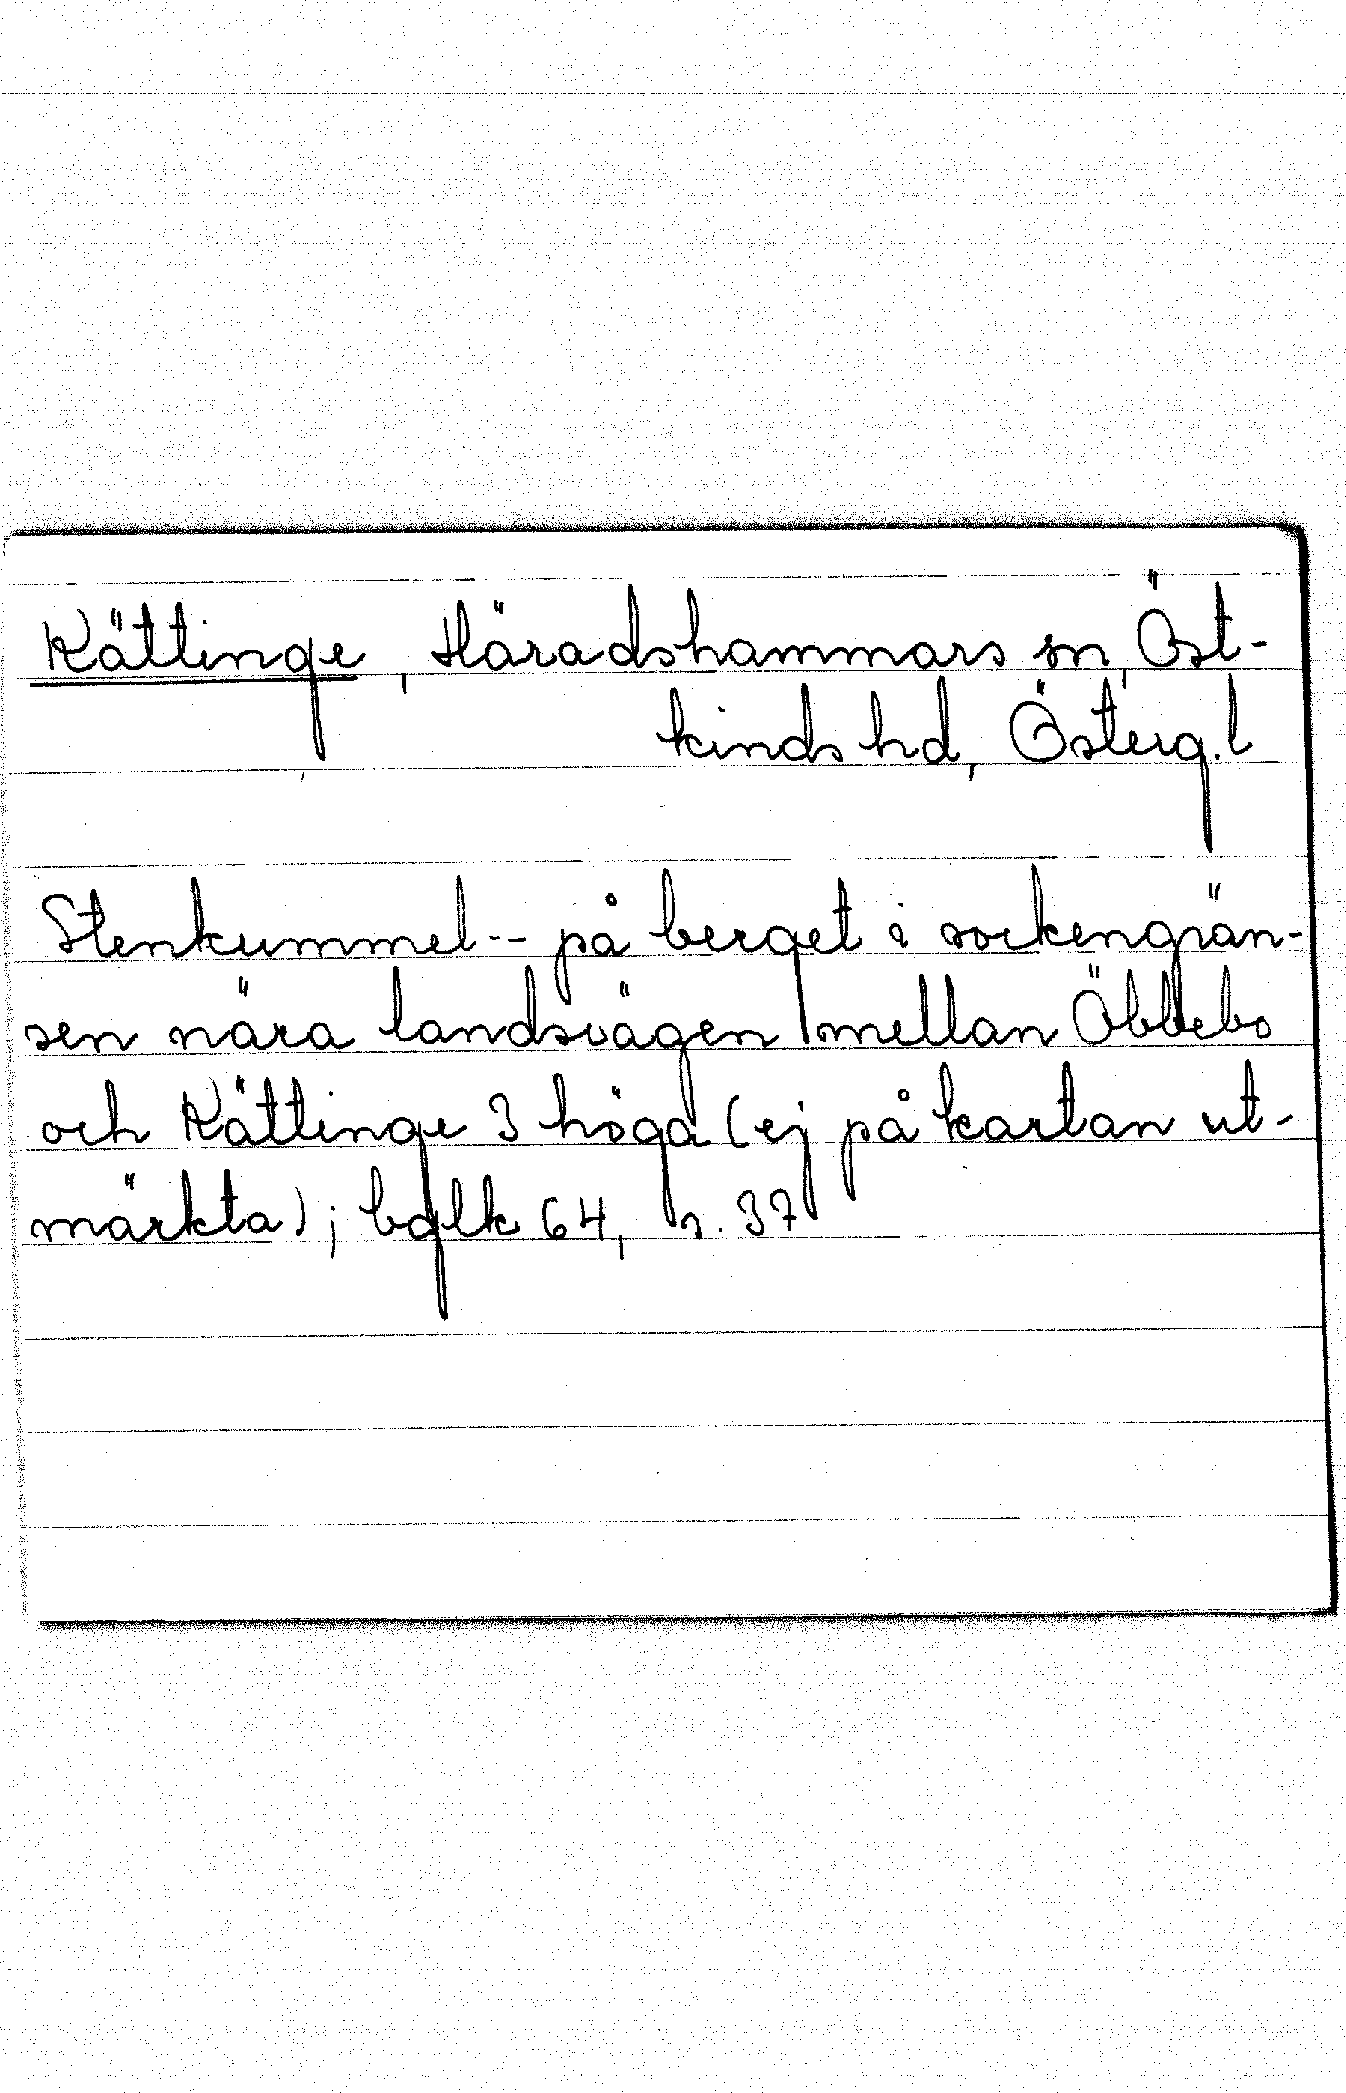 Kättinge, Häradshammars sn, Öst-
kinds hd, Österg. l
Stenkummel -- på berget i sockengrän-
sen nära landsvägen mellan Öbblebo
och Kättinge 3 höga (ej på kartan ut-
märkta); bglk 64, s. 37